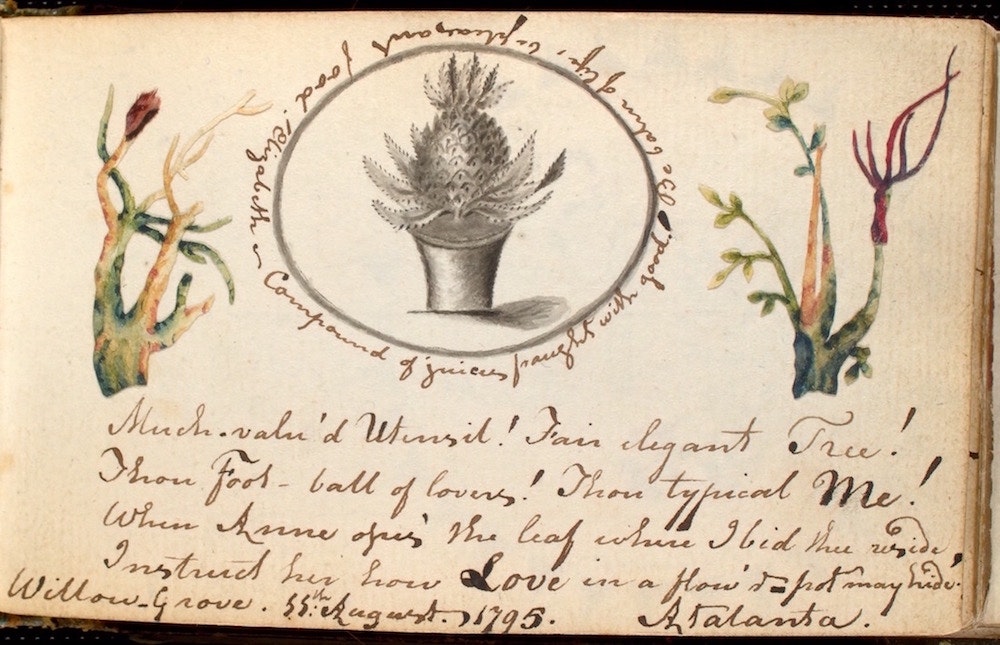 Elizabethan Compound of juices fraught with good!
Be balm of life, & pleasant food!
Much-valu'd Utensil! Fair elegant Tree!
Thou Foot-ball of lovers! Thou typical Me!
When Anne opes the leaf where I bid thee reside,
Instruct her how Love in a flow'r-pot may hide.
Willow-Grove. 11th. August. 1795. Atalanta.